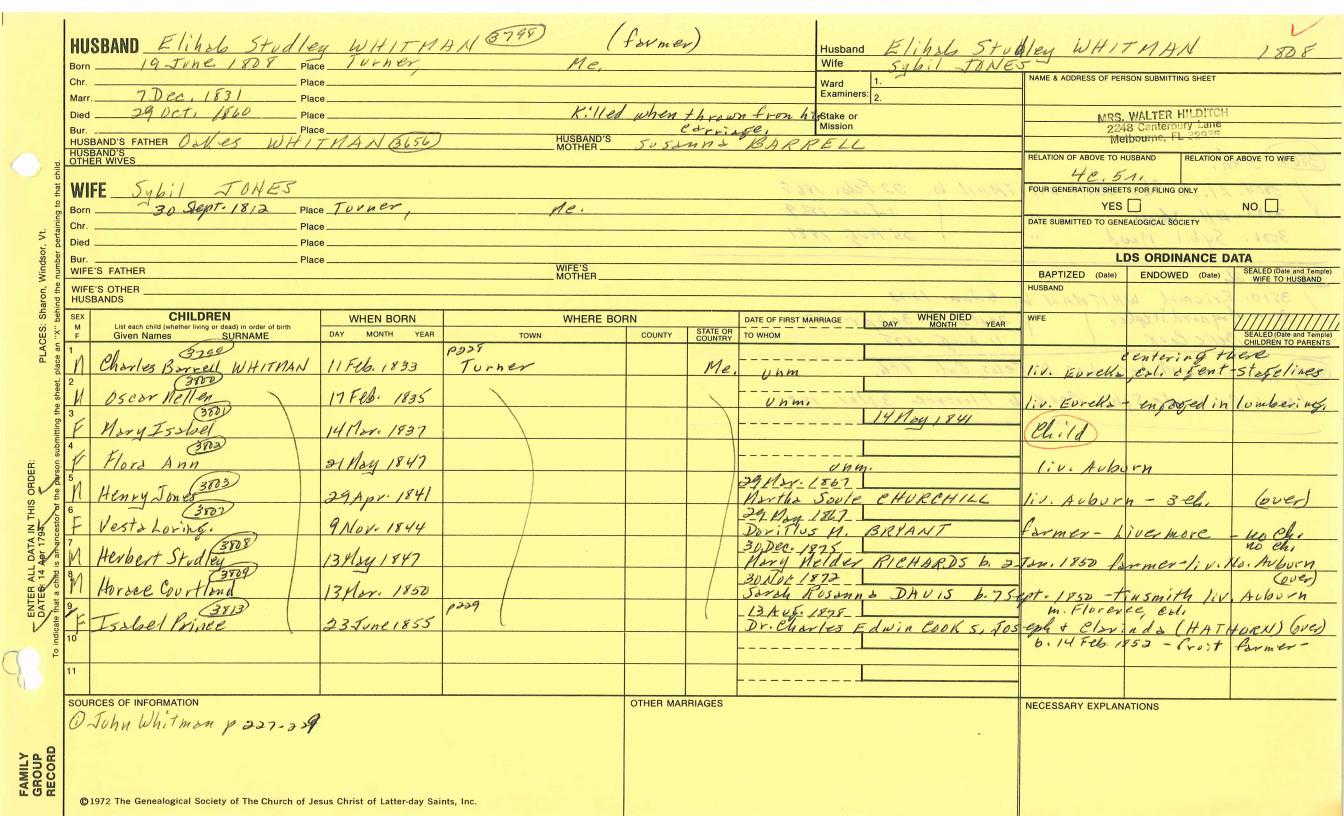 HUSBAND Elihab Studley WHITMAN 3798 (farmer)
Born 19 June 1808 Place Turner, Me.
Chr. Place
Marr. 7 Dec. 1831 Place
Died 29 Oct. 1860 Place Killed when thrown from his
Bur. Place carriage.
HUSBAND'S FATHER Oakes WHITMAN 3656 HUSBAND'S MOTHER Susanna BARRELL
HUSBAND'S OTHER WIVES
WIFE Sybil JONES
Born 30 Sept. 1812 Place Turner, Me.
Chr. Place
Died Place
Bur. Place
WIFE'S FATHER WIFE'S MOTHER
WIFE'S OTHER HUSBANDS
Husband Elihab Studley WHITMAN 1808
Wife Sybil JONES
Ward Examiners: 1.
2.
Stake or Mission
NAME & ADDRESS OF PERSON SUBMITTING SHEET
MRS. WALTER HILDITCH
2248 Canterbury Lane
Melbourne, FL
RELATION OF ABOVE TO HUSBAND RELATION OF ABOVE TO WIFE
4c. 5r.
FOUR GENERATION SHEETS FOR FILING ONLY
YES NO
DATE SUBMITTED TO GENEALOGICAL SOCIETY
LDS ORDINANCE DATA
BAPTIZED (Date) ENDOWED (Date) SEALED (Date and Temple) WIFE TO HUSBAND
HUSBAND
WIFE
SEALED (Date and Temple) CHILDREN TO PARENTS
SEX M F
CHILDREN
List each child (whether living or dead) in order of birth
Given Names SURNAME
WHEN BORN
DAY MONTH YEAR
WHERE BORN
TOWN COUNTY STATE OR COUNTRY
DATE OF FIRST MARRIAGE
TO WHOM
WHEN DIED
DAY MONTH YEAR
1 M Charles Barrell WHITMAN 3799 11 Feb. 1833 p228 Turner Me. unm liv. Eureka, Cal. agent - stagelines centering there
2 M Oscar Mellen 3800 17 Feb. 1835 unm. liv. Eureka - engaged in lumbering.
3 F Mary Isabel 3801 14 Mar. 1837 14 May 1841 Child
4 F Flora Ann 3802 21 May 1847 unm. liv. Auburn
5 M Henry Jones 3803 29 Apr. 1841 29 Mar. 1867 Martha Soule CHURCHILL liv. Auburn - 3 ch. (over)
6 F Vesta Loring. 3807 9 Nov. 1844 29 May 1867 Dorillus M. BRYANT farmer - Livermore - no ch.
7 M Herbert Studley 3808 13 May 1847 30 Dec. 1875 Mary Helder RICHARDS b. 2 Jan. 1850 farmer - liv. No. Auburn no ch.
8 M Horace Courtland 3809 13 Mar. 1850 30 Nov 1872 Sarah Rosanna DAVIS b. 7 Sept. 1850 - tinsmith liv. Auburn (over)
9 F Isabel Prince 3813 23 June 1855 p229 13 Aug. 1878 m. Florence, Cal.
Dr. Charles Edwin COOK s, Joseph & Clarinda (HATHORN) (over)
b. 14 Feb 1852 - fruit farmer -
10
11
SOURCES OF INFORMATION
① John Whitman p 227-229
OTHER MARRIAGES
NECESSARY EXPLANATIONS
©1972 The Genealogical Society of The Church of Jesus Christ of Latter-day Saints, Inc.
FAMILY GROUP RECORD
ENTER ALL DATA IN THIS ORDER:
DATES: 14 Apr 1794
PLACES: Sharon, Windsor, Vt.
To indicate that a child is an ancestor of the person submitting the sheet, place an "X" behind the number pertaining to that child.